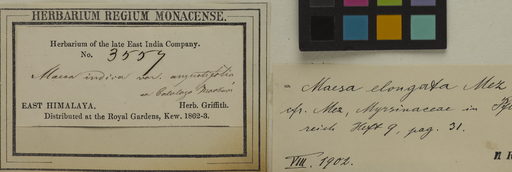 HERBARIUM REGIUM MONACENSE.
Herbarium of the late East India Company.
No. 3557
Maesa indica var. angustifolia
EAST HIMALAYA. Herb. Griffith.
Distributed at the Royal Gardens, Kew. 1862-3.
Maesa elongata Mez
cfr. Mez, Myrsinaceae in
reich Heft 9, pag. 31.
VIII. 1902.